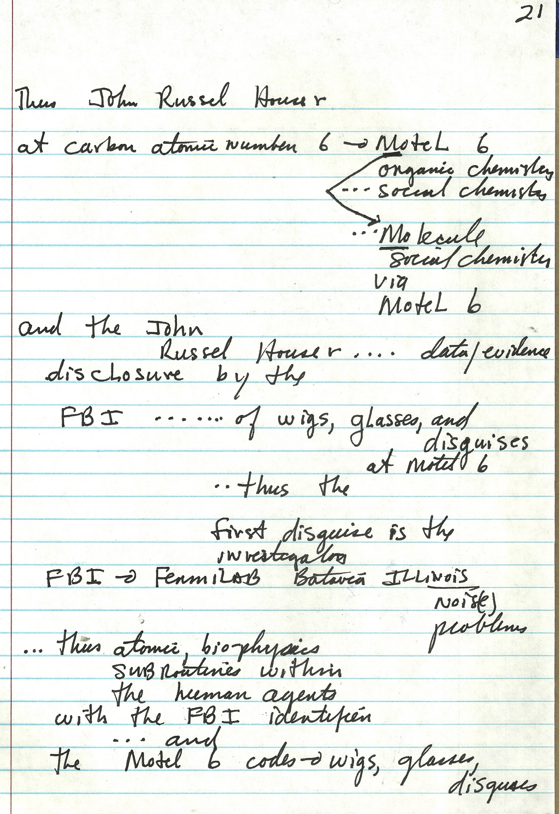 21
Thus John Russel Houser
at carbon atomic number 6 → Motel 6
organic chemistry
... social chemistry
... Molecule
social chemistry
via
Motel 6
and the John
Russel Houser .... data/evidence
disclosure by the
FBI ....... of wigs, glasses, and
disguises
at Motel 6
.. thus the
first disguise is the
investigation
FBI → FermiLAB Batavia ILLinois
Nois(e)
problems
... thus atomic, biophysics
subroutines within
the human agents
with the FBI identifier
... and
the Motel 6 codes → wigs, glasses,
disguses